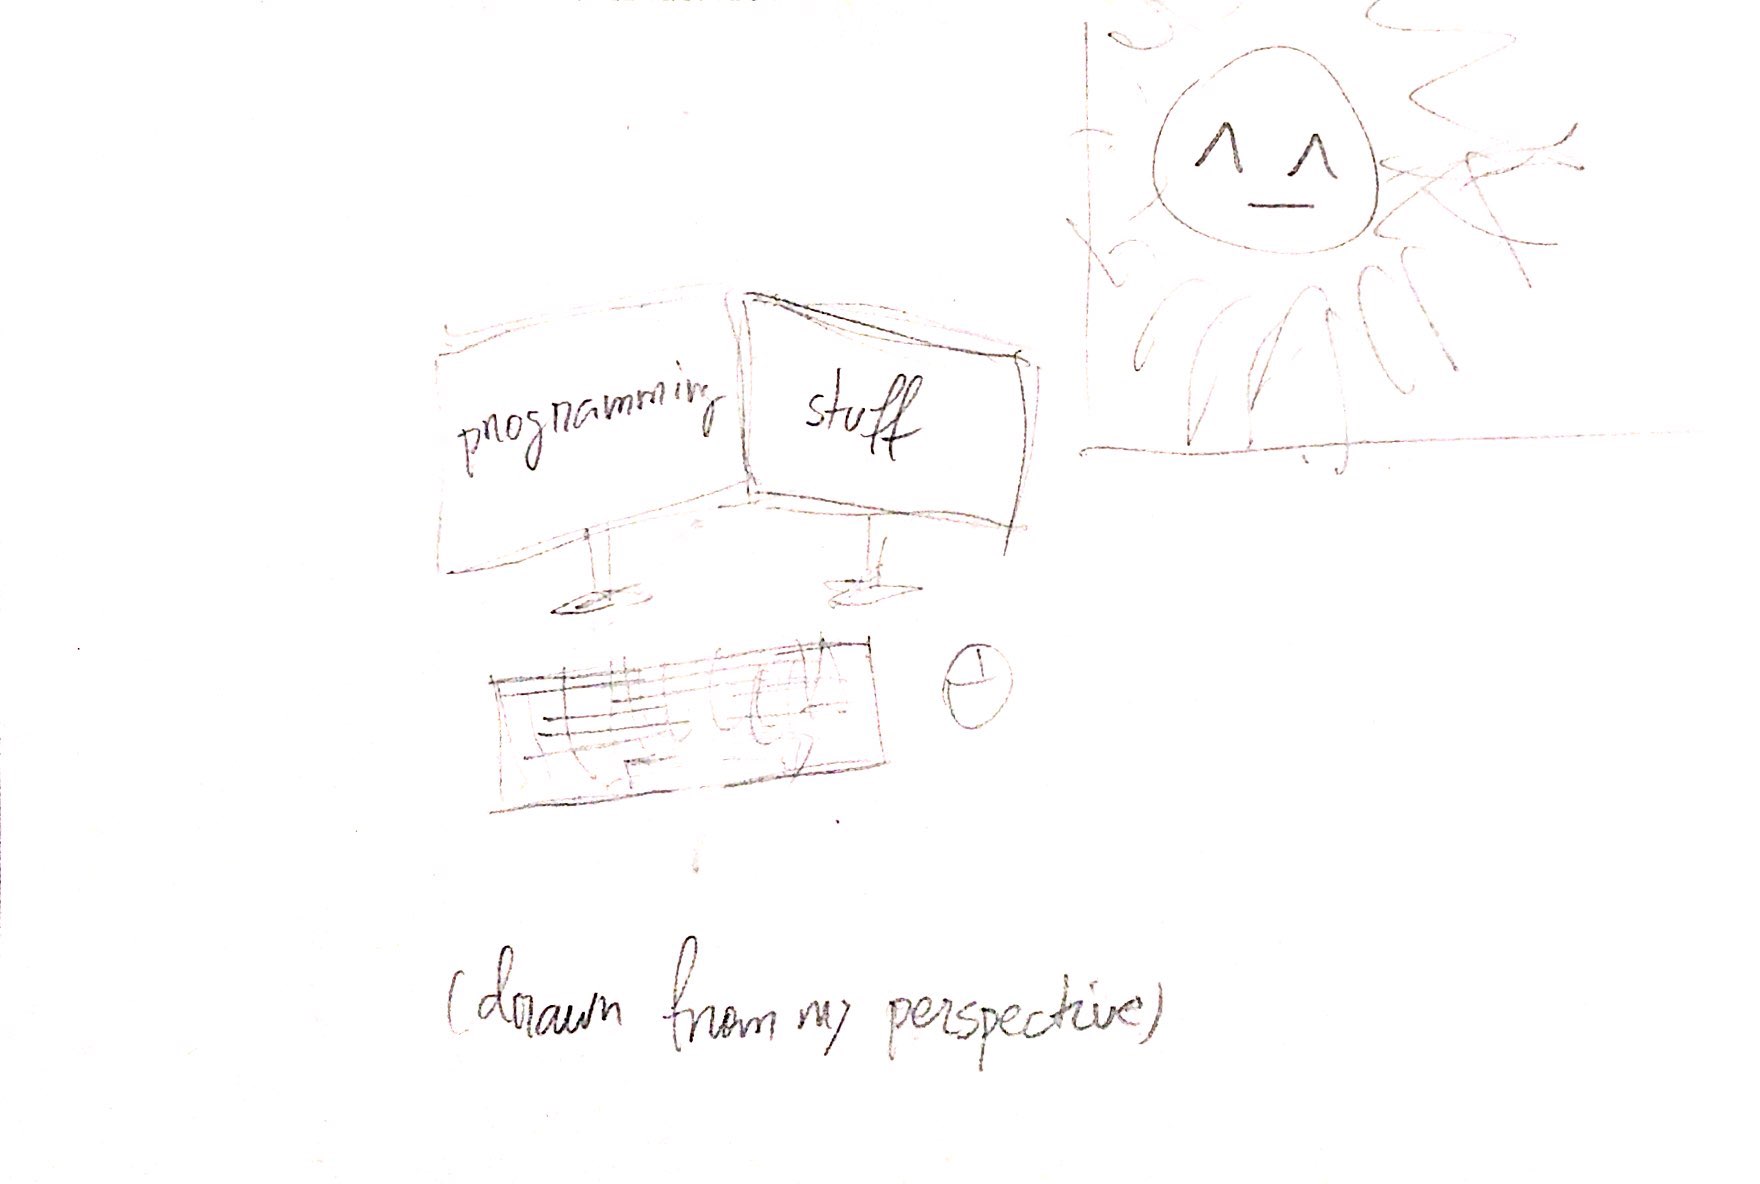 programming stuff
(drawn from my perspective)